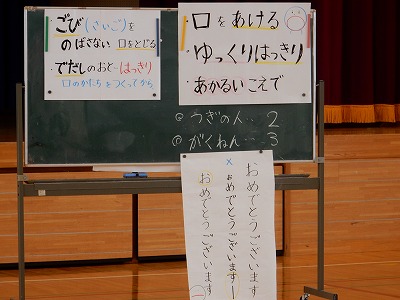 ごび(さいご)を
のばさない 口をとじる
でだしのおと…はっきり
口のかたちをつくってから
口をあける
ゆっくりはっきり
あかるいこえで
◎うぎの人…2
◎がくねん…3
おめでとうございます
×おめでとうございますー
おめでとうございます